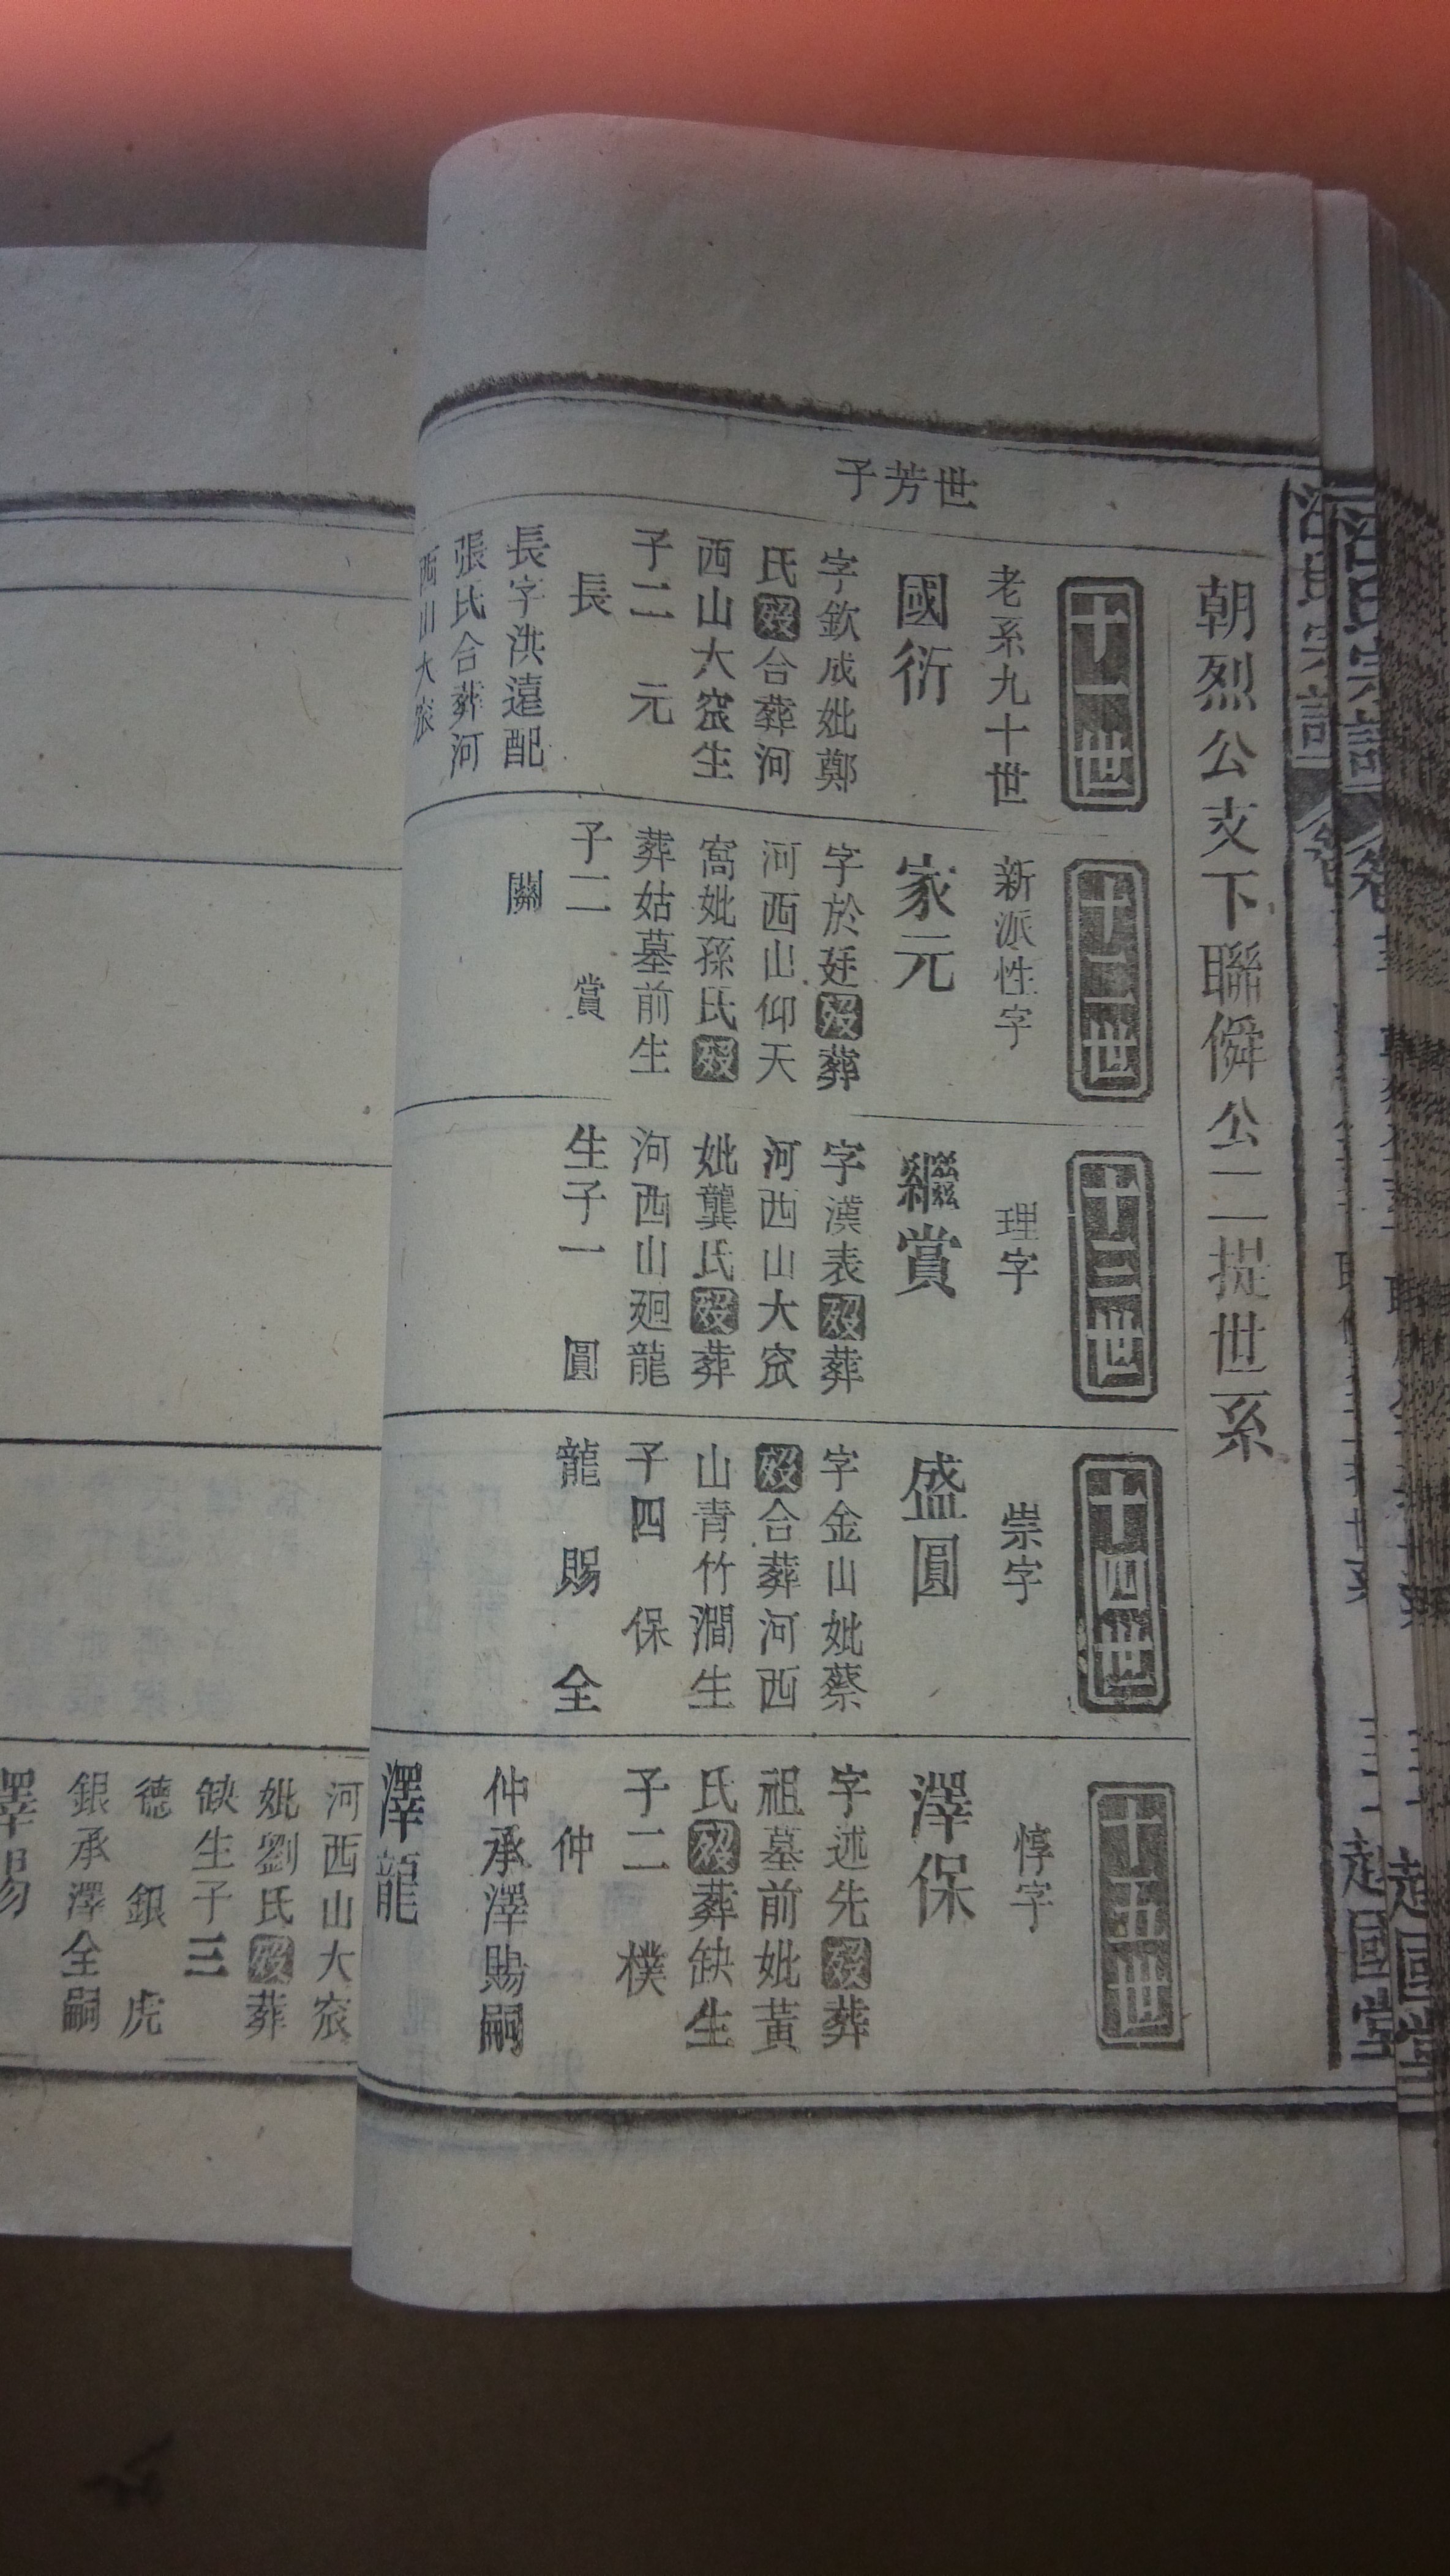 朝烈公支下聯僢公二提世系
世芳子
十一世
老系九十世
國衍
字欽成妣鄭
氏殁合葬河
西山大窊生
子二 元
長
長字洪遠配
張氏合葬河
西山大窊
十二世
新派性字
家元
字於廷殁葬
河西山仰天
窩妣孫氏殁
葬姑墓前生
子二 賞
關
十三世
理字
繼賞
字漢表殁葬
河西山大窊
妣龔氏殁葬
河西山廻龍
生子一 圓
十四世
崇字
盛圓
字金山妣蔡
殁合葬河西
山青竹澗生
子四 保
龍 賜 全
十五世
惇字
澤保
字述先殁葬
祖墓前妣黃
氏殁葬缺生
子二 樸
仲
仲承澤賜嗣
澤龍
河西山大窊
妣劉氏殁葬
缺生子三
德 銀 虎
銀承澤全嗣
趙國堂